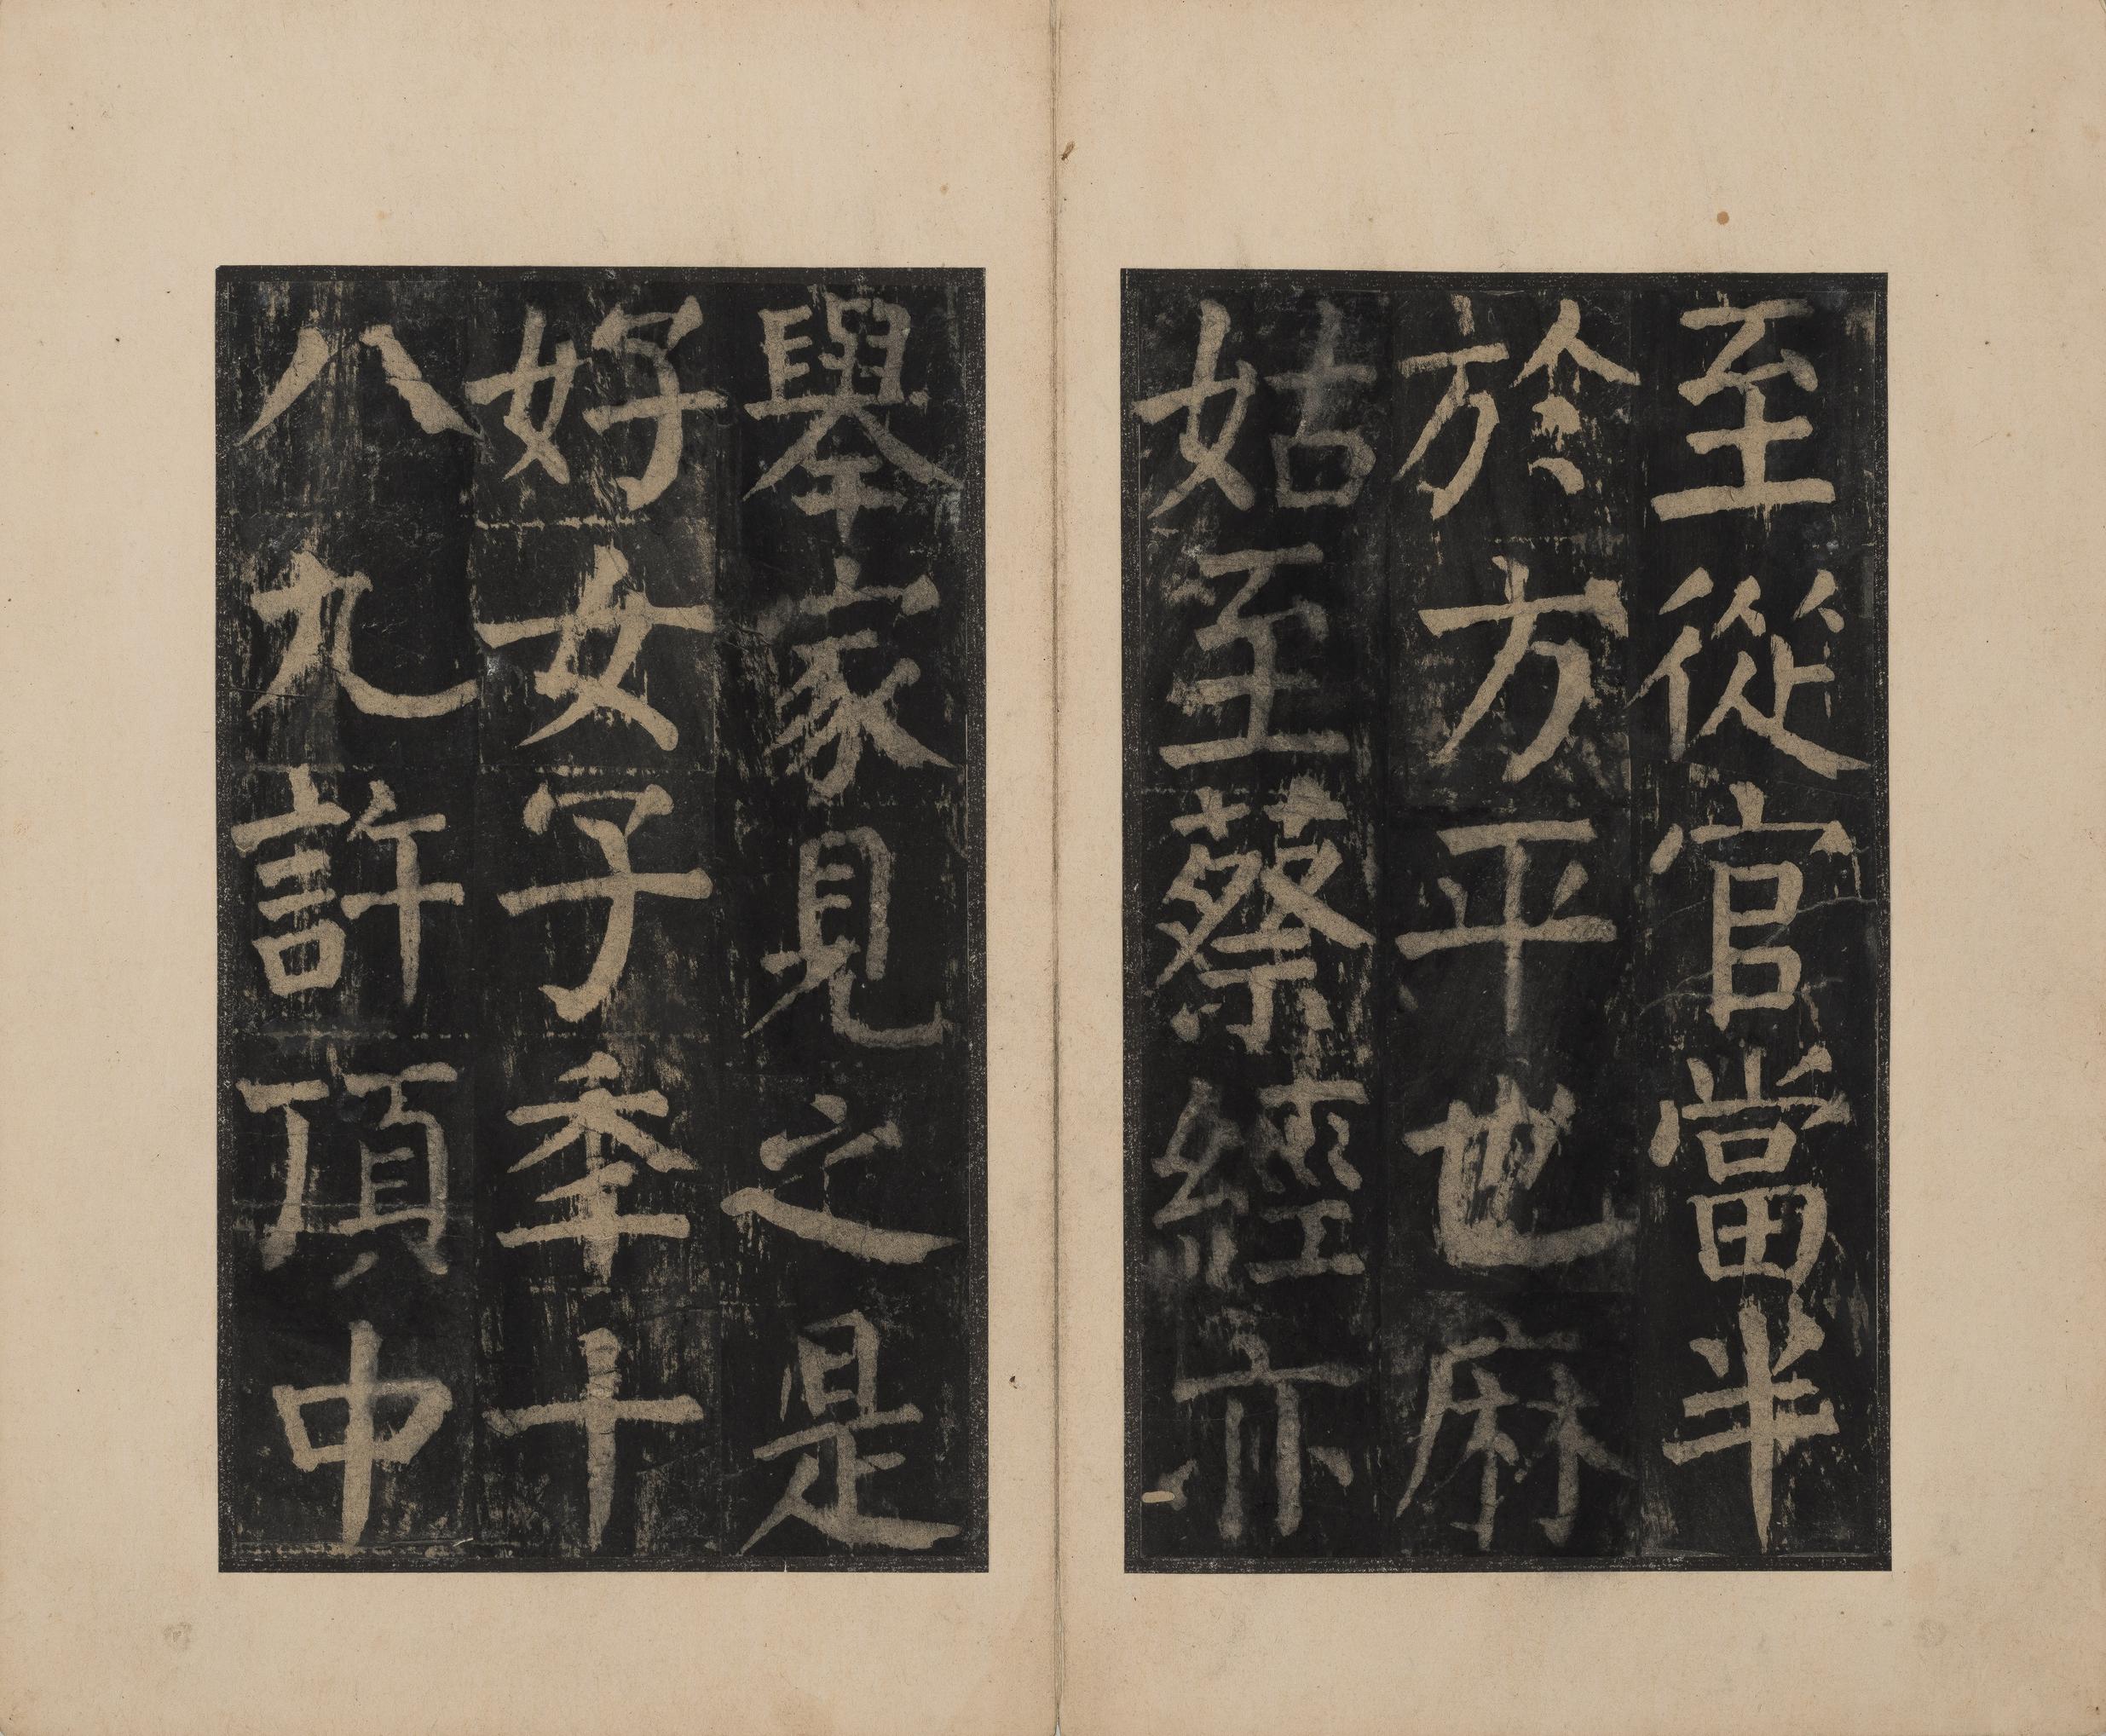 至從官當半
於方平也麻
姑至蔡經亦
舉家見之是
好女子年十
八九許頂中